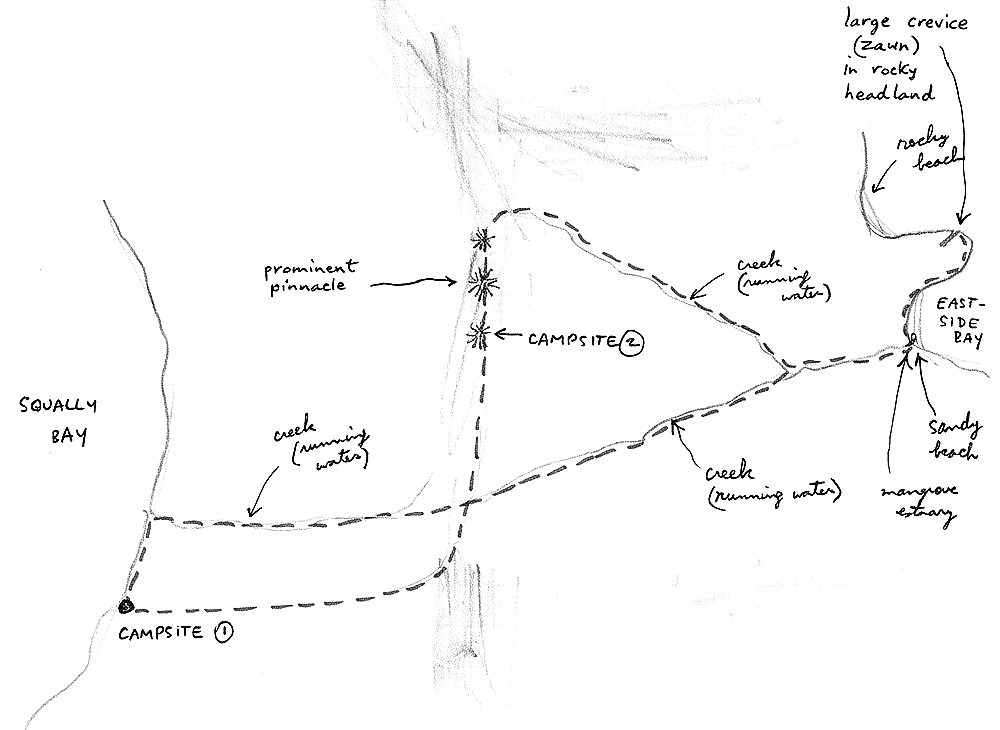 large crevice
(zawn)
in rocky
headland
rocky
beach
prominent
pinnacle
creek
(running
water)
EAST-
SIDE
BAY
CAMPSITE 2
SQUALLY
BAY
creek
(running
water)
Sandy
beach
creek
(running water)
mangrove
estuary
CAMPSITE 1